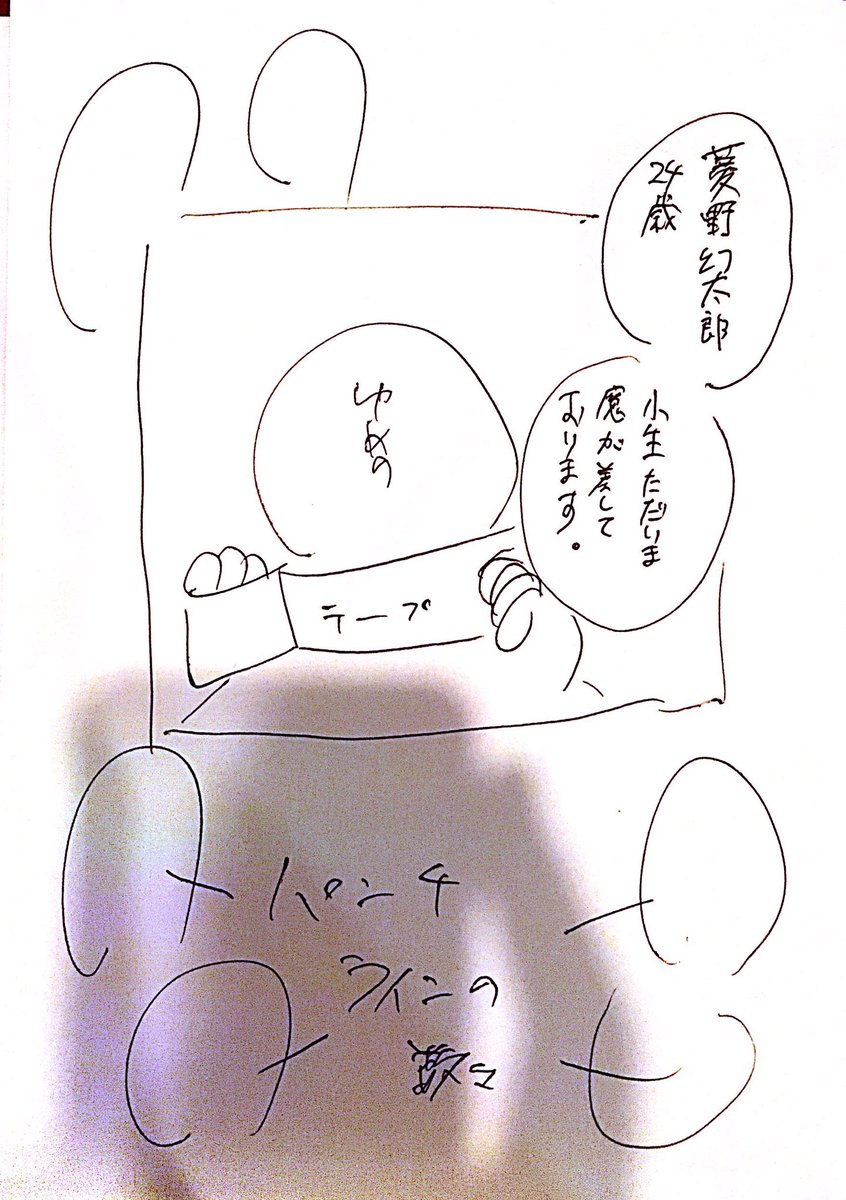 夢野幻太郎
24歳
小生ただいま
魔が差して
おります。
ゆめの
テープ
パンチ
ラインの
数々